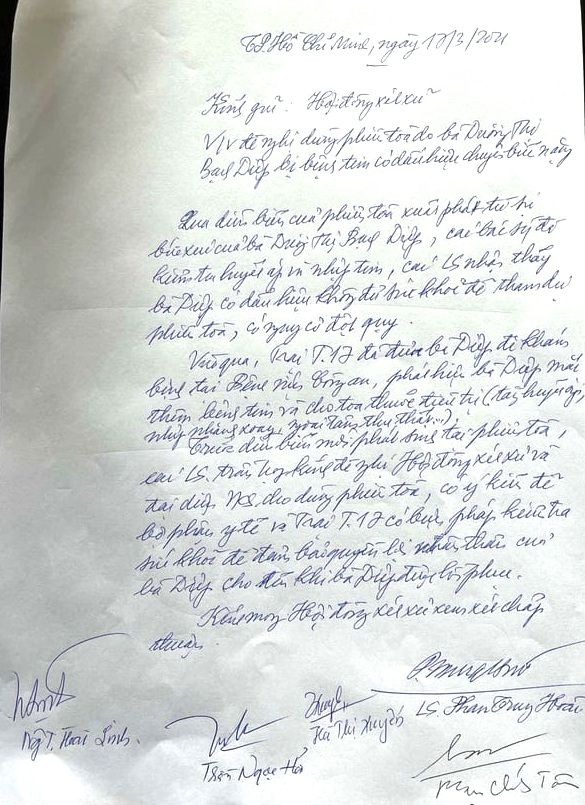 TP. Hồ Chí Minh, ngày 17/3/2021
Kính gửi: Hội đồng xét xử
V/v đề nghị dừng phiên toà do bà Dương Thị
Bạch Diệp bị bệnh tim có dấu hiệu chuyển biến nặng
Qua diễn biến của phiên toà xuất phát từ sự
bức xúc của bà Dương Thị Bạch Diệp, các bác sỹ đã
kiểm tra huyết áp và nhịp tim, các LS nhận thấy
bà Diệp có dấu hiệu không đủ sức khoẻ để tham dự
phiên toà, có nguy cơ đột quỵ.
Vừa qua, Trại T.17 đã đưa bà Diệp đi khám
bệnh tại Bệnh viện Công an, phát hiện bà Diệp mắc
thêm bệnh tim và cho toa thuốc điều trị (tăng huyết áp,
nhịp nhanh xoang, ngoại tâm thu thất...),
Trước diễn biến mới phát sinh tại phiên toà,
các LS. trân trọng kính đề nghị Hội đồng xét xử và
đại diện VKS cho dừng phiên toà, có ý kiến để
bộ phận y tế và Trại T.17 có biện pháp kiểm tra
sức khoẻ để đảm bảo quyền lợi nhân thân của
bà Diệp cho đến khi bà Diệp được hồi phục.
Kính mong Hội đồng xét xử xem xét chấp
thuận.
Ng T. Hoài Linh
Trần Ngọc Hà
Hà Thị Xuyến
LS. Phan Trung Hoài